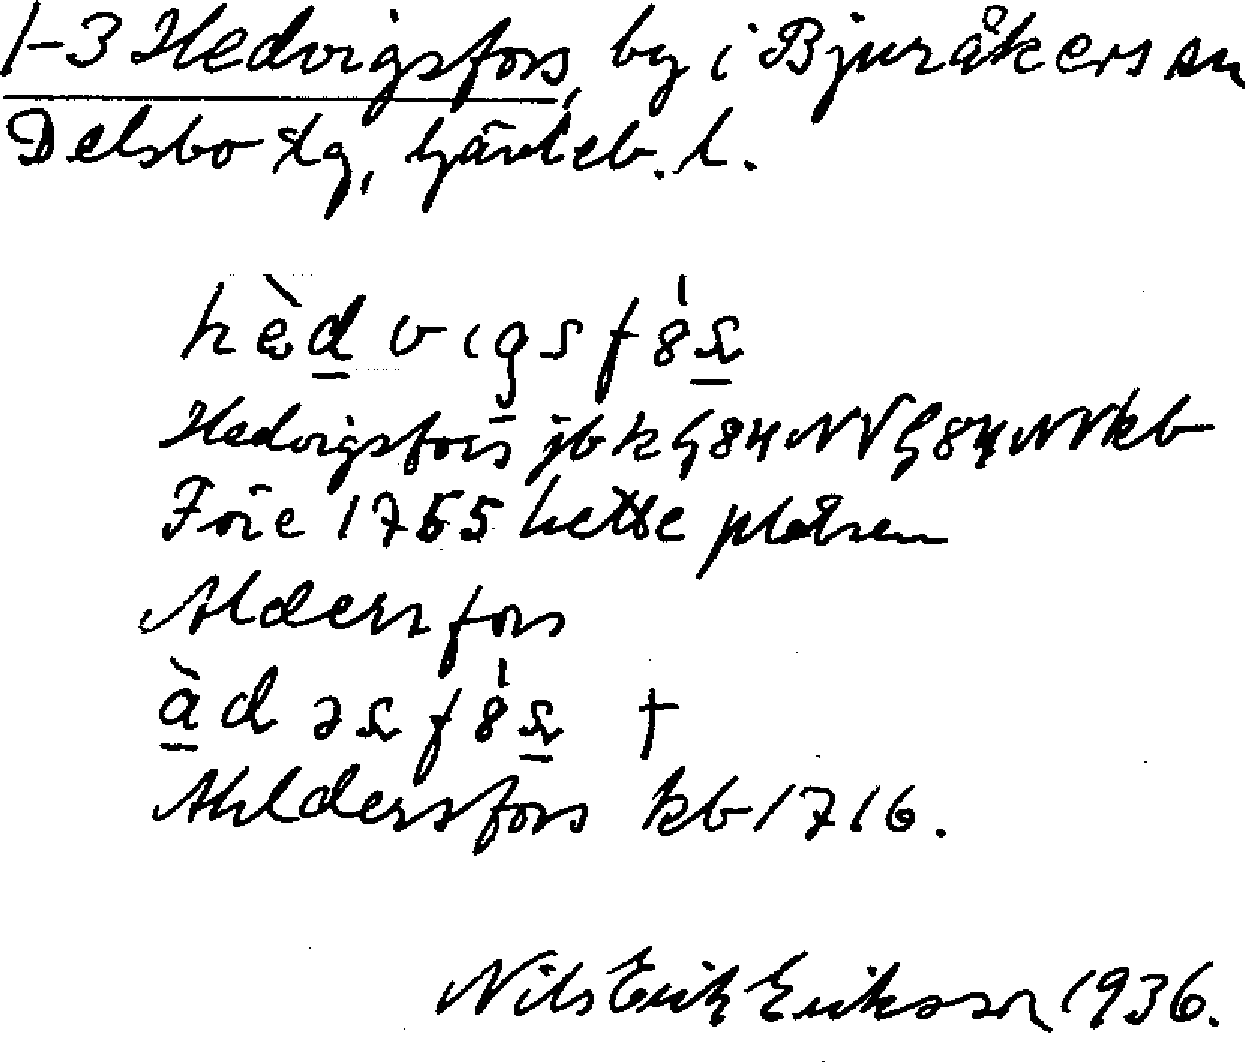 1-3 Hedvigsfors, by i Bjuråkers sn
Delsbo tg, Gävleb. l.
hèdvɩgsfȣ́s
Hedvigsfors jb k G84NV G84NV kb
Före 1755 hette platsen
Aldersfors
àdəsfȣ́s †
Ahldersfors kb 1716.
Nils Erik Eriksson 1936.